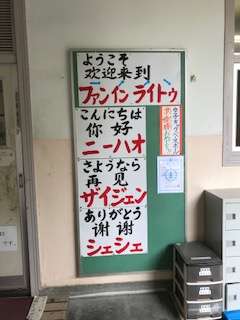 ようこそ
欢迎来到
ファンイン ライトゥ
こんにちは
你好
ニーハオ
さようなら
再见
ザイジェン
ありがとう
谢谢
シェシェ
です。